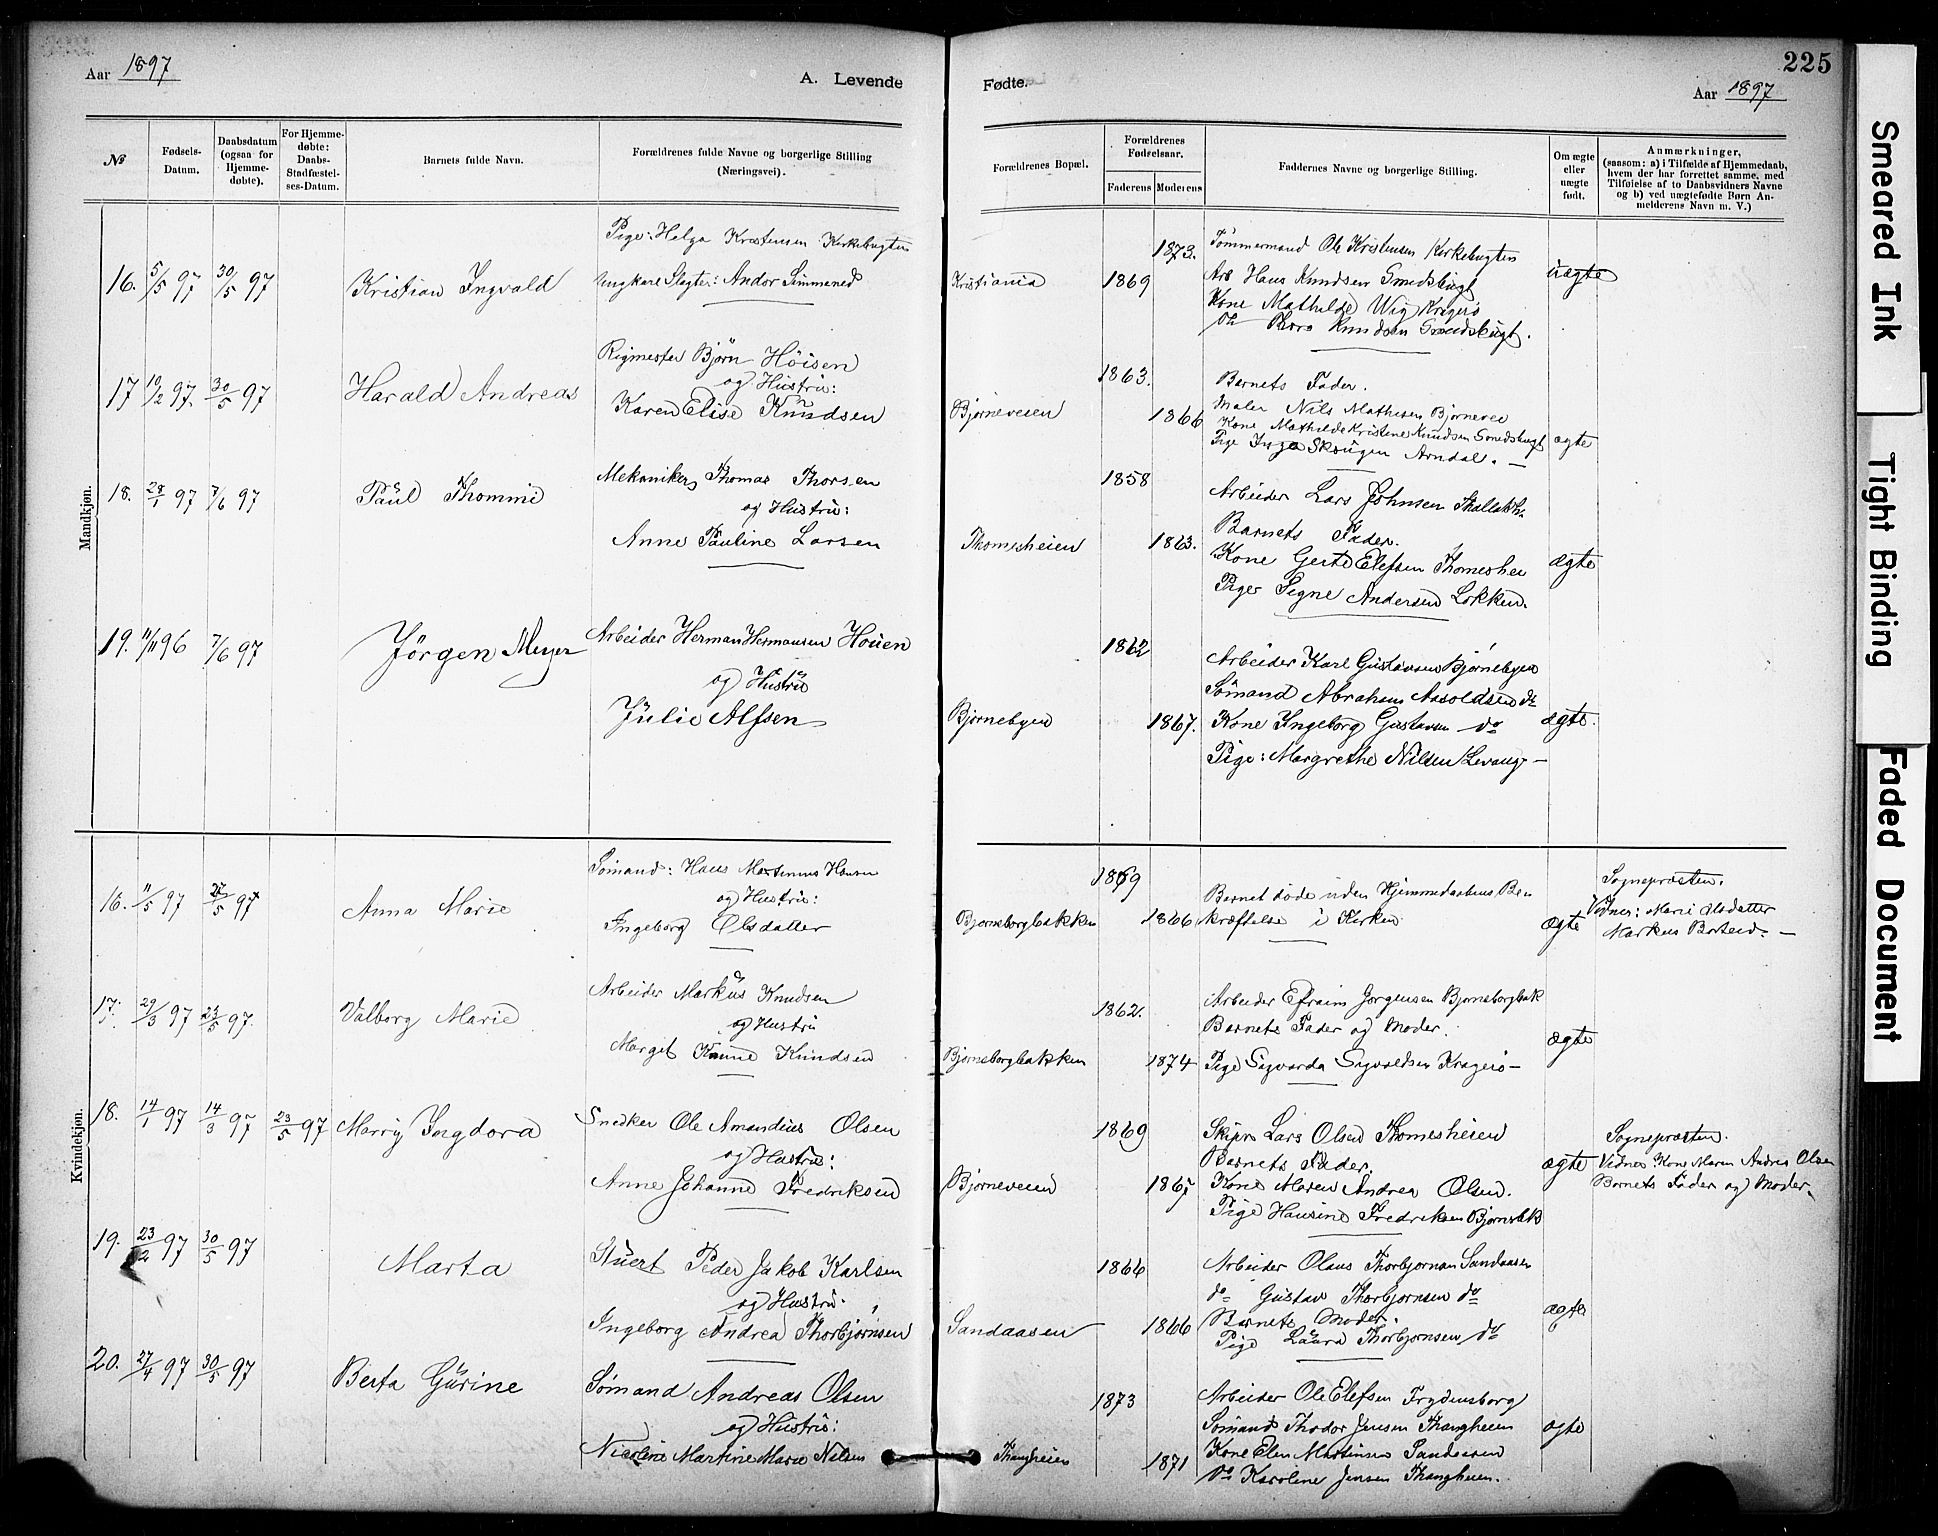 Aar 1897
A. Levende
Fødte.
225
Aar 1897
№
Fødsels-Datum.
Daabsdatum (ogsaa for Hjemme-døbte).
For Hjemme-døbte: Daabs-Stadfæstel-ses-Datum.
Barnets fulde Navn.
Forældrenes fulde Navne og borgerlige Stilling (Næringsvei).
Forældrenes Bopæl.
Forældrenes Fødselsaar.
Faderens
Moderens
Faddernes Navne og borgerlige Stilling.
Om ægte eller uægte født.
Anmærkninger,
(saasom: a) i Tilfælde af Hjemmedaab,
hvem der har forrettet samme, med
Tilføielse af to Daabsvidners Navne
og b) ved uægtefødte Børn An-
melderens Navn m. V.)
Mandkjøn.
16. 5/5 97 30/5 97
Kristian Ingvald
Pige: Helga Kristensen Kirkebugten
Ungkarl Slagter: Andor Simmened
Kristiania
1869
1873.
Tømmermand Ole Kristensen Kirkebugten
Arb Hans Knudsen Smedsbugt
Kone Mathilde Wig Kragerø
Thora Knudsen Smedsbugt.
uægte
17 10/2 97. 30/5 97
Harald Andreas
Rigmester Bjørn Höisen
og Hustru:
Karen Elise Knudsen
Bjørneveien
1863.
1866
Barnets Fader.
Maler Nils Mathisen Bjørnevei
Kone Mathilde Kristine Knudsen Smedsbugt
Pige Inga Skougen Arndal.
ægte
18. 28/1 97 7/6 97
Paul Thommie
Mekaniker Thomas Thorsen
og Hustru:
Anne Pauline Larsen
Thomesheien
1858
1863.
Arbeider Lars Johnsen
Barnets Fader.
Kone Gerte Elefsen Thomeshei
Pige Signe Andersen Løkken.
ægte
19. 11/11 96 7/6 97
Jörgen Meyer
Arbeider Herman Hermansen Houen
og Hustru
Julie Alfsen
Bjørnebyen
1862
1867.
Arbeider Karl Gustavsen Bjørnebyen
Sömand Abraham Aasoldsen do
Kone Ingeborg Gustavsen do
Pige: Margrethe Nilsen Levang
ægte.
Kvindekjøn.
16. 11/5 97 27/5 97
Anna Marie
Sömand: Hans Martinius Hansen
og Hustru:
Ingeborg Olsdatter
Bjørneborgbakken
1869
1866
Barnet døde uden Hjemmedaabens Be-
kræftelse i Kirken
ægte
Sognepræsten.
Vidner: Marie Olsdatter
Markus
17. 29/3 97 23/5 97.
Valborg Marie
Arbeider Markus Knudsen
og Hustru
Marget Knudsen
Bjørneborgbakken
1862.
1874
Arbeider Efraim Jørgensen Bjørneborgbak
Barnets Fader og Moder.
Pige Sigvarda Sigvaldsen Kragerö
ægte
18. 14/1 97 14/3 97 23/5 97
Marry Ingdora
Snedker Ole Amandius Olsen
og Hustru:
Anne Johanne Fredriksen
Bjørneveien
1869
1867
Skipr Lars Olsen Thomesheien
Barnets Fader.
Kone Maren Andrea Olsen.
Pige Hansine Fredriksen Bjørnsbk
ægte
Sognepræsten.
Vidner Kone Maren Andrea Olsen
Barnets Fader og Moder.
19. 23/2 97 30/5 97
Marta
Stuert Peder Jakob Karlsen
og Hustru.
Ingeborg Andrea Thorbjørnsen
Sandaasen
1866
1866
Arbeider Olaus Thorbjørnsen Sandaasen
do Gustav Thorbjornsen do
Barnets Moder.
Pige Laura Thorbjornsen do
ægte
20. 27/4 97 30/5 97
Berta Gurine
Sömand Andreas Olsen
og Hustru:
Nicoline Martine Marie Nilsen
Thangheien
1873
1871
Arbeider Ole Elefsen Frydensborg
Sömand Thodor Jensen Thangheien
Kone Elen Martinsen Sandaasen
do Karoline Jensen Thangheien.
ægte
Smeared Ink
Tight Binding
Faded Document